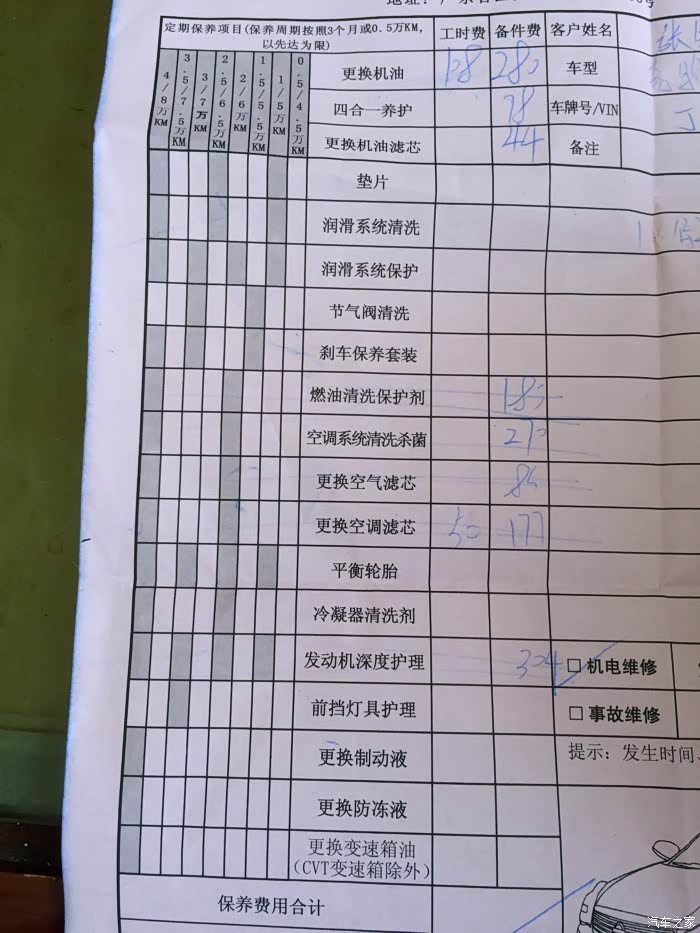 定期保养项目(保养周期按照3个月或0.5万KM,以先达为限) 工时费 备件费 客户姓名
0.5/4.5万KM
1/5万KM
1.5/5.5万KM
2/6万KM
2.5/6.5万KM
3/7万KM
3.5/7.5万KM
4/8万KM
更换机油 128 280 车型
四合一养护 78 车牌号/VIN
更换机油滤芯 44 备注
垫片
润滑系统清洗
润滑系统保护
节气阀清洗
刹车保养套装
燃油清洗保护剂
空调系统清洗杀菌
更换空气滤芯
更换空调滤芯 50 177
平衡轮胎
冷凝器清洗剂
发动机深度护理 304 □ 机电维修
前挡灯具护理 □ 事故维修
更换制动液 提示:发生时间
更换防冻液
更换变速箱油
(CVT变速箱除外)
保养费用合计
汽车之家